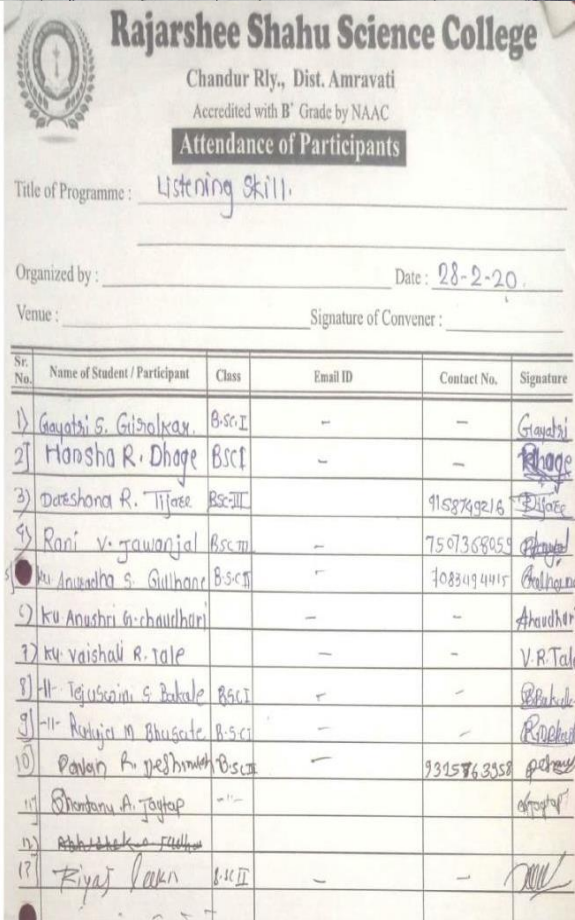 Rajarshee Shahu Science College
Chandur Rly., Dist. Amravati
Accredited with B+ Grade by NAAC
Attendance of Participants
Title of Programme : Listening Skill.
Organized by : Date : 28-2-20.
Venue : Signature of Convener :
Sr. No. Name of Student / Participant Class Email ID Contact No. Signature
1) Gayatri S. Gisolkar. B.Sc.I - - Gayatri
2] Hansha R. Dhage BSCI - - Dhage
3) Dareshana R. Tijare BSC-III 9158749216 Tijare
4) Rani V. Jawanjal BSC III - 7507368059
5) Ku Anuradha S. Gulhane B.S.C II - 7083494415 Gulhane
6) Ku Anushri G. chaudhari - - Ahaudhari
7) Ku. Vaishali R. Tale - - V.R.Tale
8) -11- Tejaswini S Bakale BSC I - - Bakale
9) -11- Rutuja M Bhusate B.SCI - -
10) Pavan R. Deshmukh B.SC II - 9325763958
11) Shantanu A. Jagtap -"- Jagtap
12) Abhishek
13 Riyaj B.SC II - -